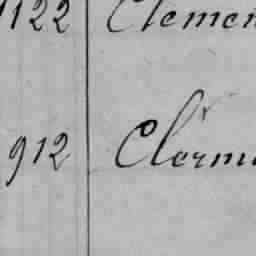 1122 Clemen
912 Clerm